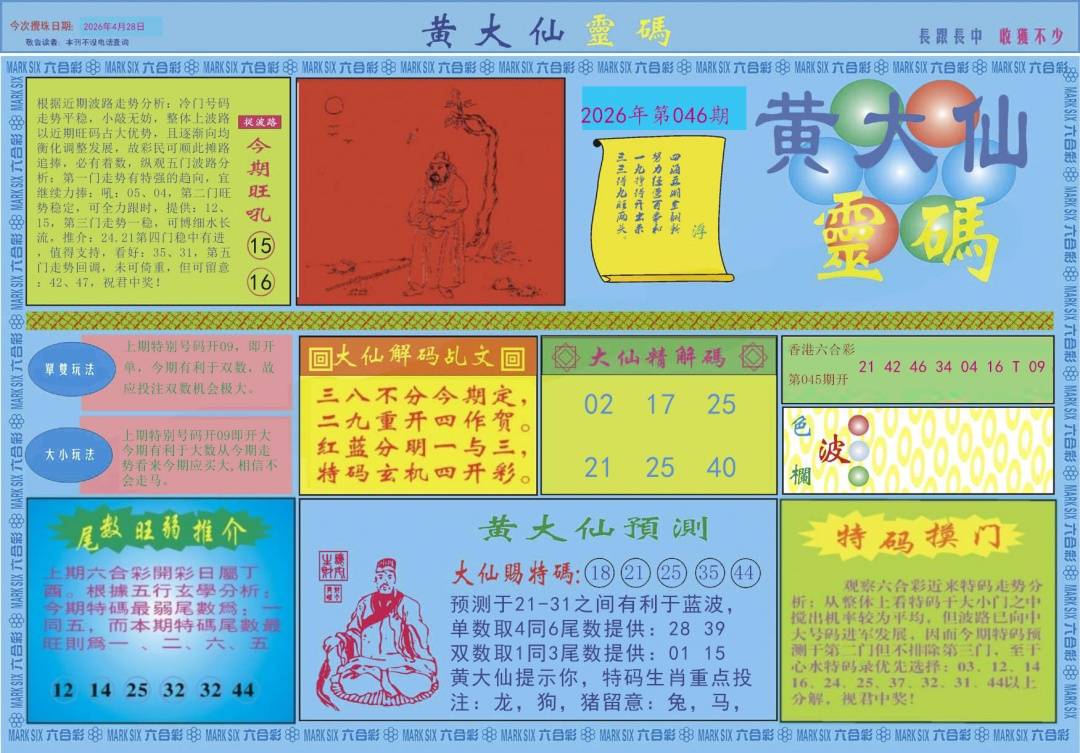 今次攪珠日期: 2026年4月28日
敬告读者: 本刊不设电话查询
黄大仙靈碼
長跟長中 收獲不少
MARK SIX 六合彩
根据近期波路走势分析：冷门号码
走势平稳，小敲无妨，整体上波路
以近期旺码占大优势，且逐渐向均
衡化调整发展，故彩民可顺此摊路
追捧，必有着数，纵观五门波路分
析：第一门走势有特强的趋向，宜
继续力捧：吼：05、04，第二门旺
势稳定，可全力跟时，提供：12、
15，第三门走势一稳，可博细水长
流，推介：24.21第四门稳中有进
，值得支持，看好：35、31，第五
门走势回调，未可倚重，但可留意
：42、47，祝君中奖！
捉波路
今期旺吼
15
16
2026年第046期
三三得九旺两头。
黄大仙
靈碼
單雙玩法
上期特别号码开09，即开
单，今期有利于双数，故
应投注双数机会极大。
大小玩法
上期特别号码开09即开大
今期有利于大数从今期走
势看来今期应买大,相信不
会走马。
大仙解码乩文
三八不分今期定，
二九重开四作贺。
红蓝分明一与三，
特码玄机四开彩。
大仙精解碼
02 17 25
21 25 40
香港六合彩
第045期开
21 42 46 34 04 16 T 09
色
波
欄
尾数旺弱推介
上期六合彩開彩日屬丁
酉。根據五行玄學分析：
今期特碼最弱尾數爲：一
同五，而本期特碼尾數最
旺則爲一、二、六、五
12 14 25 32 32 44
黄大仙預測
大仙赐特碼: 18 21 25 35 44
预测于21-31之间有利于蓝波，
单数取4同6尾数提供：28 39
双数取1同3尾数提供：01 15
黄大仙提示你，特码生肖重点投
注：龙，狗，猪留意：兔，马，
特码摸门
观察六合彩近来特码走势分
析：从整体上看特码干大小门之中
搅出机率较为平均，但波路已向中
大号码进军发展，因而今期特码预
测于第二门但不排除第三门，至于
心水特码录优先选择：03、12、14
16、24、25、37、32、31、44以上
分解，祝君中奖！